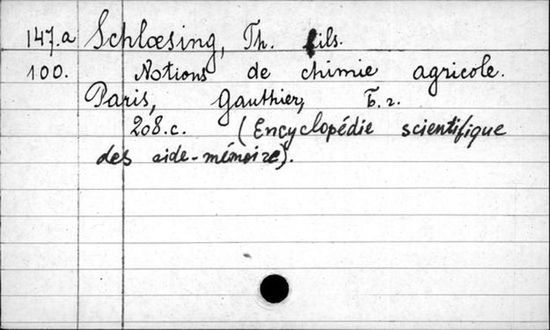 147.a Schlœsing, Th. fils.
100. Notions de chimie agricole.
Paris, Gauthier, Б. г.
208.c. (Encyclopédie scientifique
des aide-mémoire).